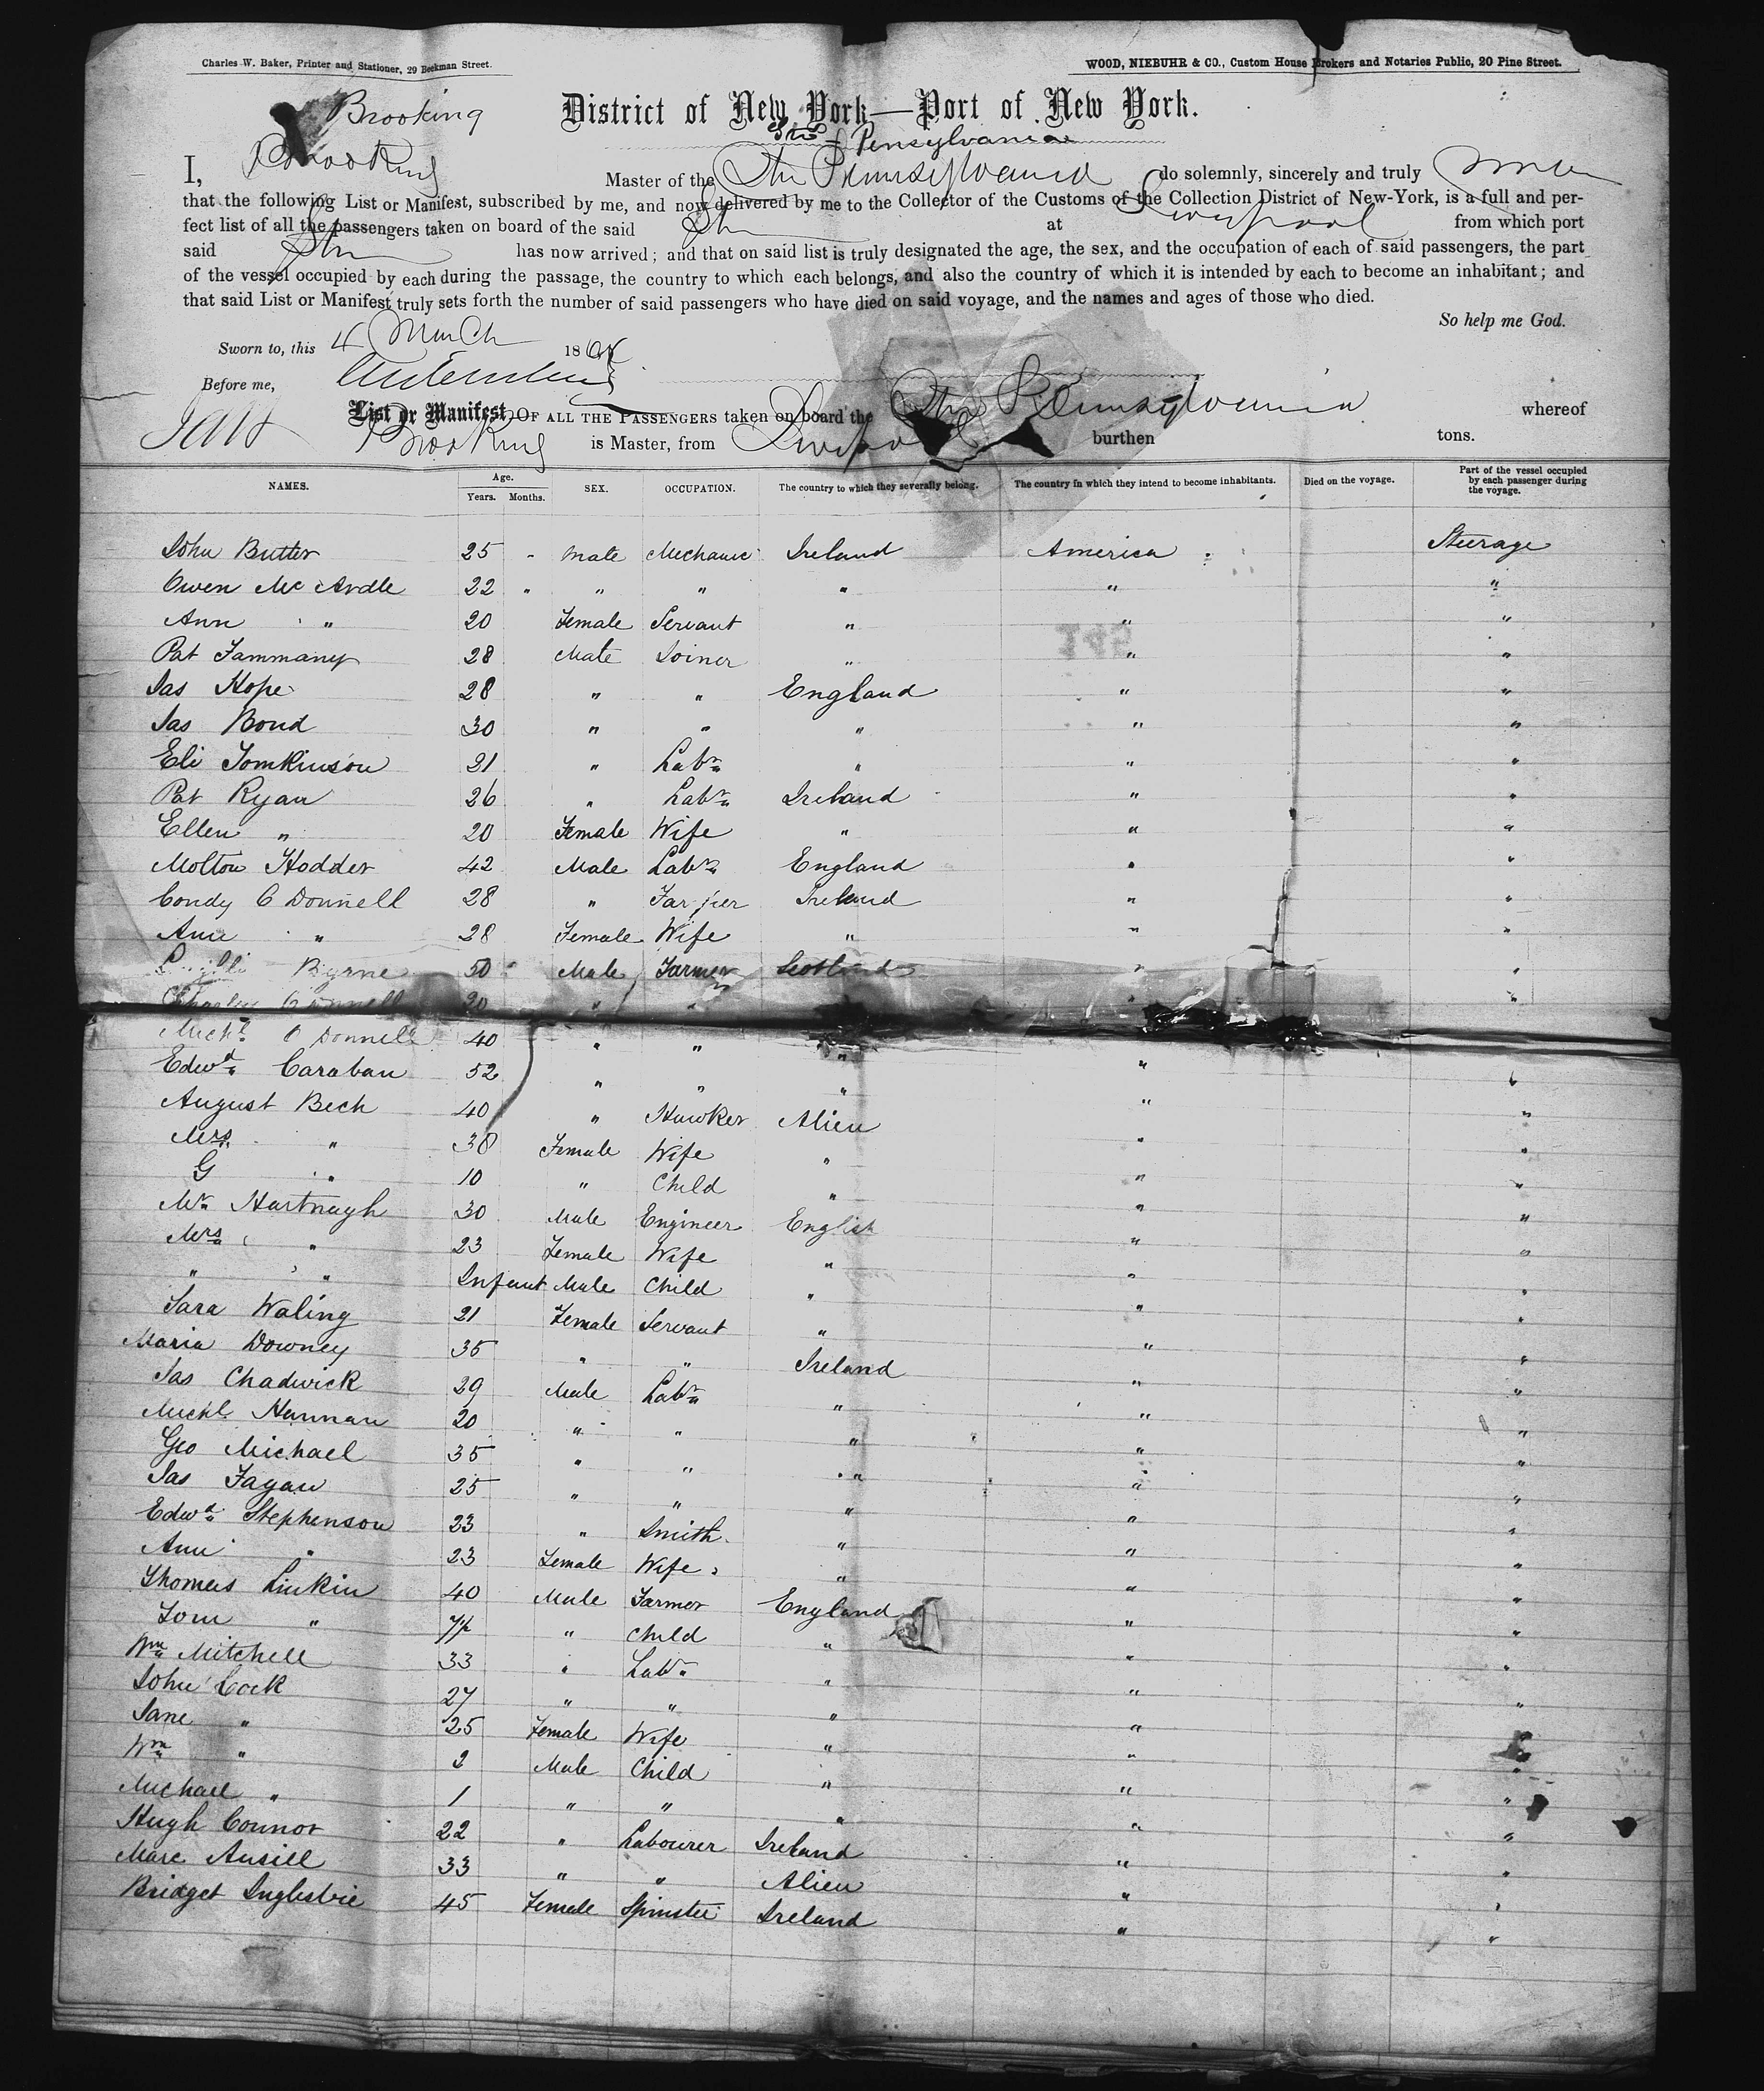 Charles W. Baker, Printer and Stationer, 29 Beekman Street.
WOOD, NIEBUHR & CO., Custom House Brokers and Notaries Public, 20 Pine Street.
Brooking
District of New York—Port of New York.
Str Pensylvania
I, Brooking Master of the Str Pennsylvania do solemnly, sincerely and truly swear
that the following List or Manifest, subscribed by me, and now delivered by me to the Collector of the Customs of the Collection District of New-York, is a full and per-
fect list of all the passengers taken on board of the said Str at Liverpool from which port
said Str has now arrived; and that on said list is truly designated the age, the sex, and the occupation of each of said passengers, the part
of the vessel occupied by each during the passage, the country to which each belongs, and also the country of which it is intended by each to become an inhabitant; and
that said List or Manifest truly sets forth the number of said passengers who have died on said voyage, and the names and ages of those who died.
So help me God.
Sworn to, this 4 March 18
Before me,
List or Manifest OF ALL THE PASSENGERS taken on board the Str Pennsylvania whereof
Brooking is Master, from Liverpool burthen tons.
NAMES. Age. Years. Months. SEX. OCCUPATION. The country to which they severally belong. The country in which they intend to become inhabitants. Died on the voyage. Part of the vessel occupied by each passenger during the voyage.
John Butler 25 " Male Mechanic Ireland America Steerage
Owen Mc Ardle 22 " " " " " "
Ann " 20 Female Servant " " "
Pat Tammany 28 Male Joiner " " "
Jas Hope 28 " " England " "
Jas Bond 30 " " " " "
Eli Tomkinson 21 " Labr " " "
Pat Ryan 26 " Labr Ireland " "
Ellen " 20 Female Wife " " "
Molton Hodder 42 Male Labr England " "
Condy O Donnell 28 " Farmer Ireland " "
Ann " 28 Female Wife " " "
Byrne 50 Male Farmer Scotland " "
Charley O Donnell 20 " " " "
Michl O Donnell 40 " " " " "
Edwd Caraban 52 " " " " "
August Bech 40 " Hawker Alien " "
Mrs " 38 Female Wife " " "
G " 10 " Child " " "
Mr Hartnagh 30 Male Engineer English " "
Mrs " 23 Female Wife " " "
" " Infant Male Child " " "
Sara Waling 21 Female Servant " " "
Maria Downey 35 " " Ireland " "
Jas Chadwick 29 Male Labr " " "
Michl Hannan 20 " " " " "
Geo Michael 35 " " " " "
Jas Fagan 25 " " " " "
Edwd Stephenson 23 " Smith " " "
Ann " 23 Female Wife " " "
Thomas Linkin 40 Male Farmer England " "
Tom " " Child " " "
Wm Mitchell 33 " Labr " " "
John Cock 27 " " " " "
Jane " 25 Female Wife " " "
Wm " 2 Male Child " " "
Michael " 1 " " " " "
Hugh Connor 22 " Labourer Ireland " "
Marc Ansill 33 " " Alien " "
Bridget Inglesbie 45 Female Spinster Ireland " "